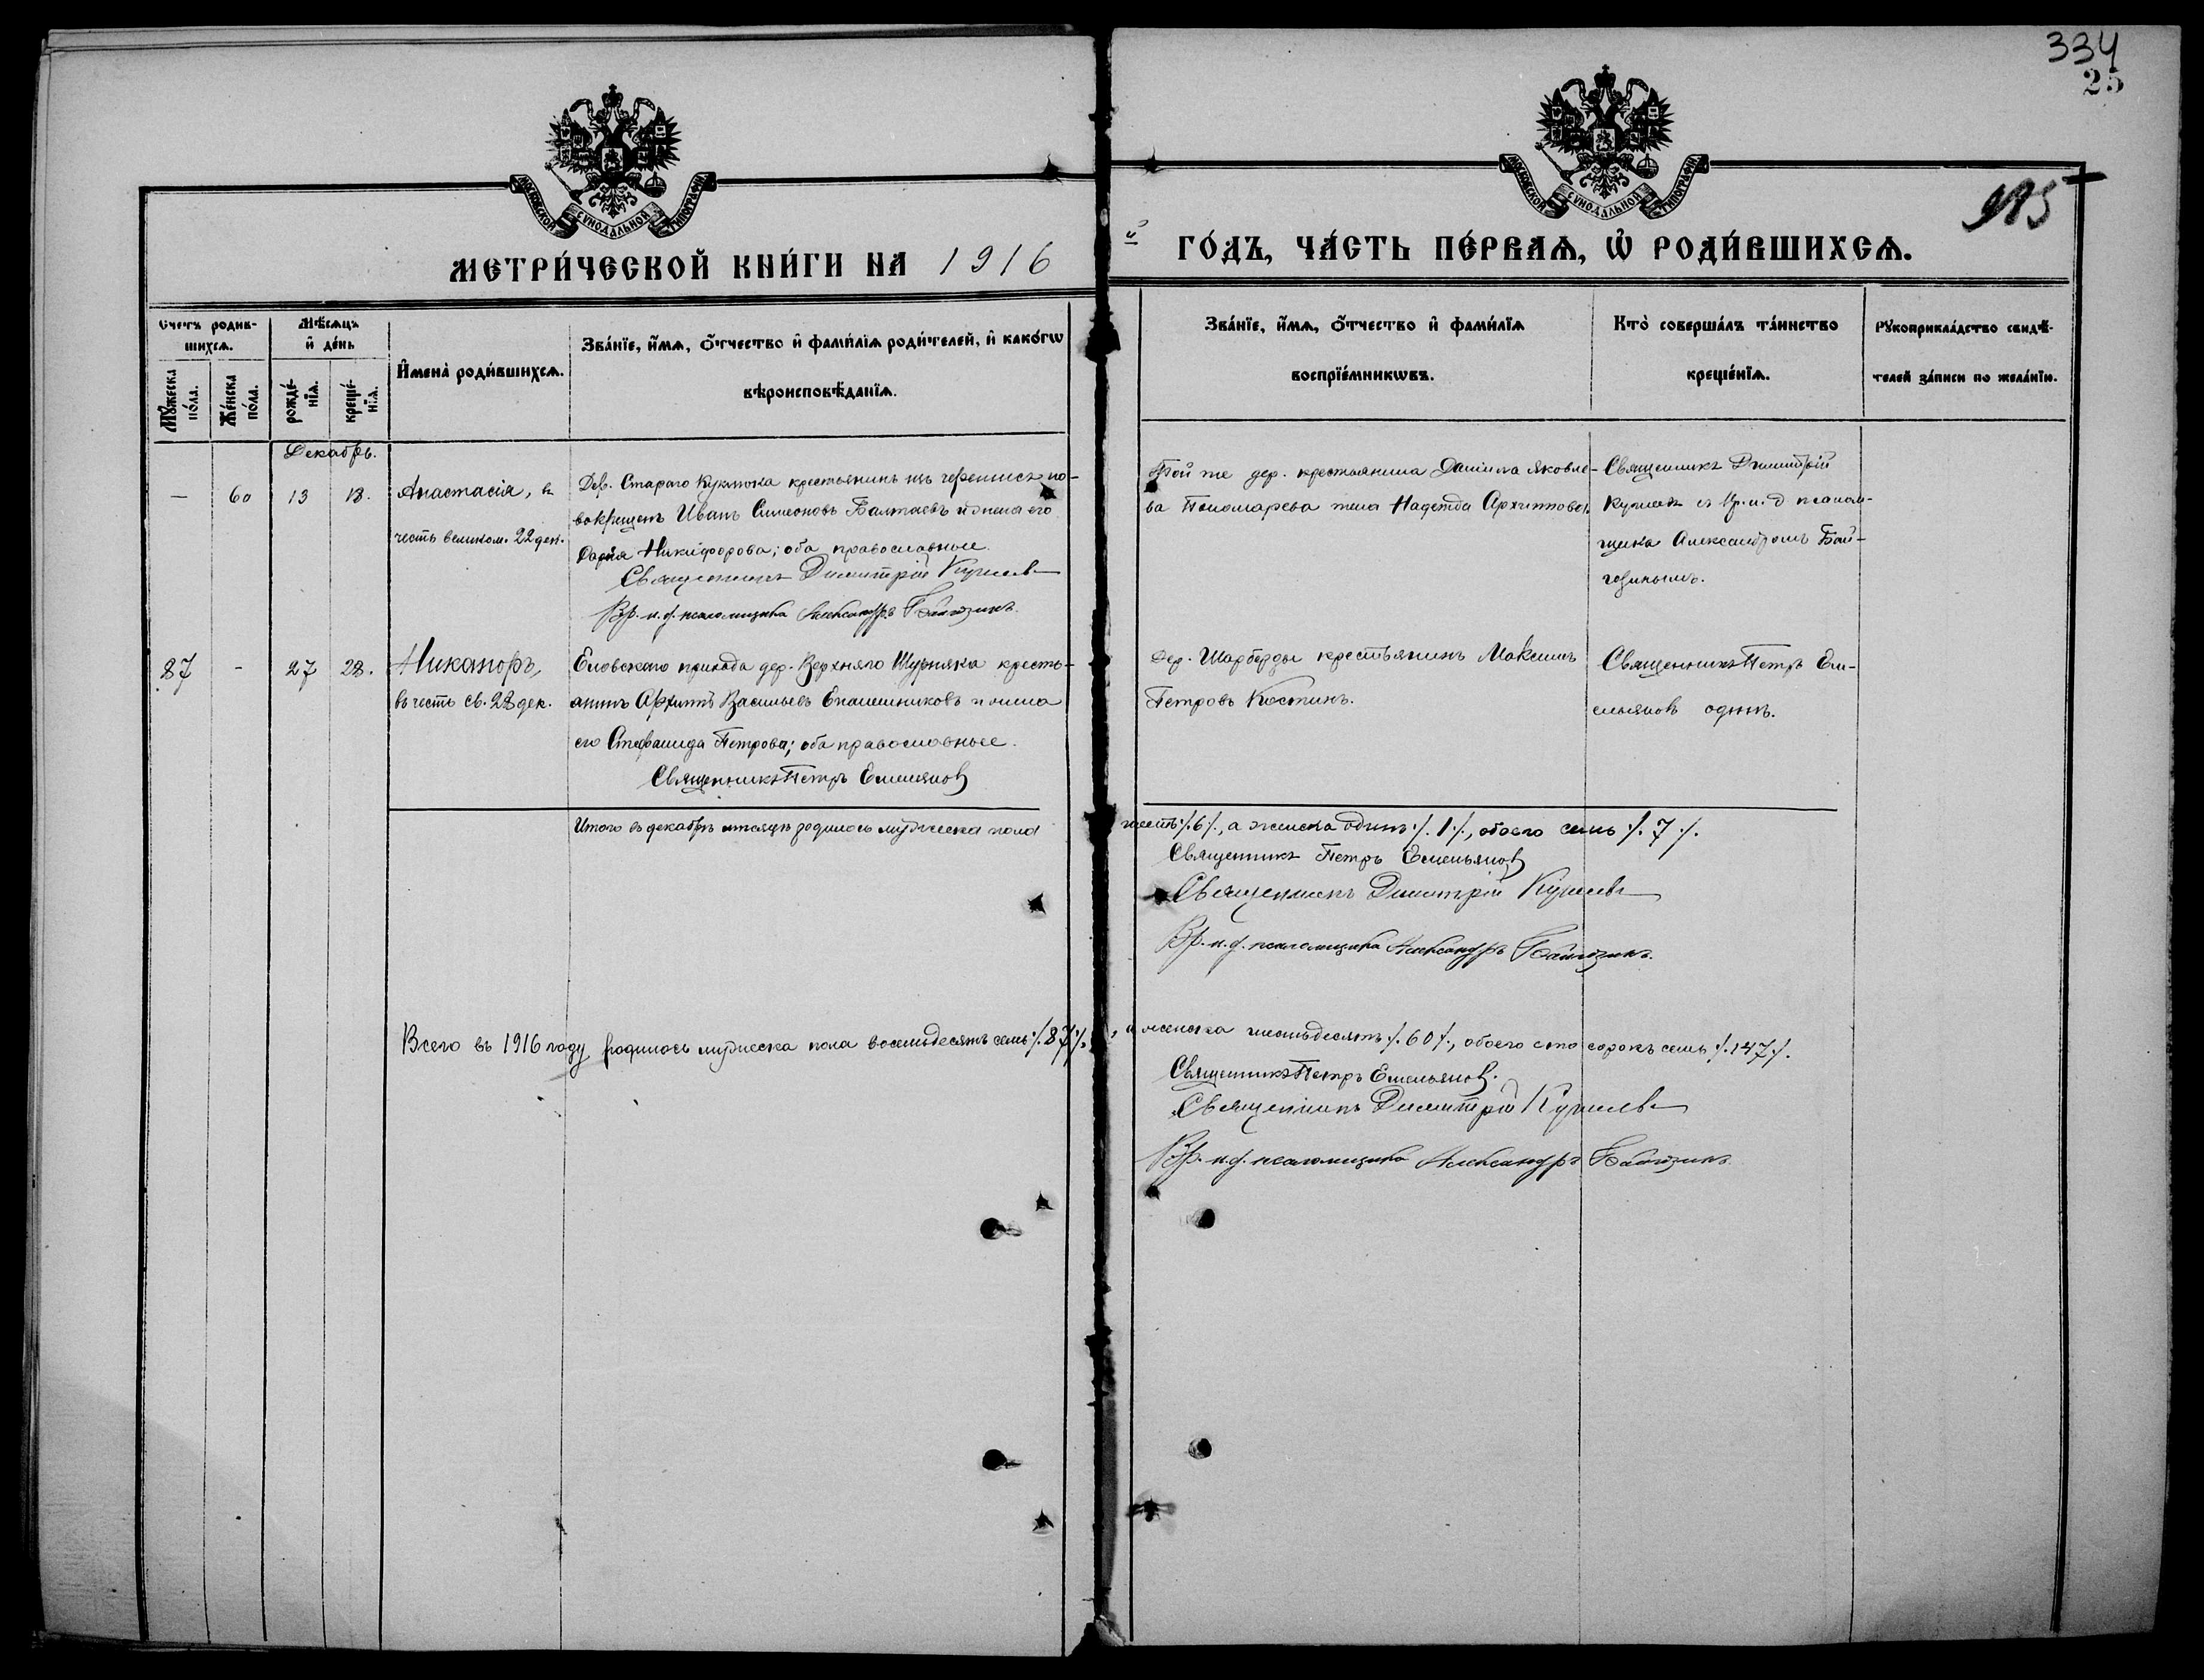 334
25
МОСКОВСКОЙ СѴНОДАЛЬНОЙ ТИПОГРАФІИ
МОСКОВСКОЙ СѴНОДАЛЬНОЙ ТИПОГРАФІИ
МЕТРИ́ЧЕСКОЙ КНИ́ГИ НА 1916 й ГО́ДЪ, ЧА́СТЬ ПЕ́РВАѦ, Ѡ҆ РОДИ́ВШИХСѦ.
Счетъ родив-
шихсѧ.
Мꙋ́жеска по́ла.
Же́нска по́ла.
Мѣ́сѧцъ
и҆ де́нь
рожде́-
нїѧ.
креще́-
нїѧ.
И҆мена̀ роди́вшихсѧ.
Зва́нїе, и҆́мѧ, ѻ҆́тчество и҆ фами́лїѧ роди́телей, и҆ како́гѡ
вѣроисповѣ́данїѧ.
Зва́нїе, и҆́мѧ, ѻ҆́тчество и҆ фами́лїѧ
воспрїе́мникѡвъ.
Кто̀ соверша́лъ та́инство
креще́нїѧ.
Рꙋкоприкла́дство свидѣ́-
телей за́писи по жела́нїю.
Декабрь.
— 60 13 18.
Анастасія, въ
честь великом. 22 дек.
Дер. Стараго Кукмока крестьянинъ изъ черемисъ но-
вокрещенъ Иванъ Симеоновъ Балтаевъ и жена его
Дарія Никифорова; оба православные.
Священникъ Димитрій
Вр. и. д. псаломщика Александръ
Той же дер. крестьянина Даніила Яковле-
ва Пономарева жена Надежда Архиппова.
Священникъ Димитрій
съ Вр. и. д псалом-
щика Александромъ Бай-
гозинымъ.
87 - 27 28.
Никаноръ,
въ честь св. 28 дек.
Еловскаго прихода дер. Верхняго Шурняка кресть-
янинъ Архиппъ Васильевъ и жена
его Стефанида Петрова; оба православные.
Священникъ Петръ Емельяновъ
Дер. Шарберды крестьянинъ Максимъ
Петровъ Костинъ.
Священникъ Петръ Еме-
льяновъ одинъ.
Итого въ декабрѣ мѣсяцѣ родилось мужеска пола шесть ./.6./., а женска одинъ ./.1./., обоего семь ./.7./.
Священникъ Петръ Емельяновъ
Священникъ Димитрій
Вр. и. д. псаломщика Александръ Байгозинъ.
Всего въ 1916 году родилось мужеска пола восемьдесятъ семь ./.87./., а женска шестьдесятъ ./.60./., обоего сто сорокъ семь ./.147./.
Священникъ Петръ Емельяновъ.
Священникъ Димитрій
Вр. и. д. псаломщика Александръ Байгозинъ